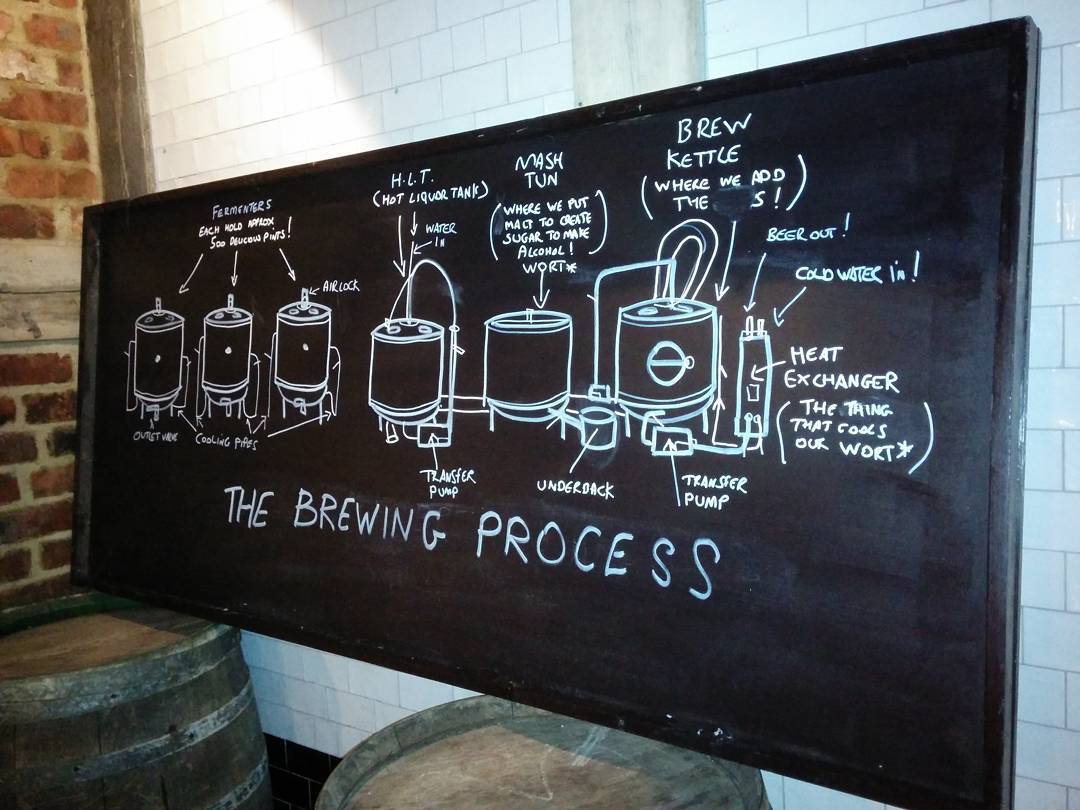 FERMENTERS
EACH HOLD APPROX
500 DELICIOUS PINTS!
AIRLOCK
OUTLET VALVE
COOLING PIPES
H.L.T.
(HOT LIQUOR TANK)
WATER
IN
TRANSFER
PUMP
MASH
TUN
(WHERE WE PUT
MALT TO CREATE
SUGAR TO MAKE
ALCOHOL!)
WORT*
UNDERBACK
BREW
KETTLE
(WHERE WE ADD
THE S!)
TRANSFER
PUMP
BEER OUT!
COLD WATER IN!
HEAT
EXCHANGER
(THE THING
THAT COOLS
OUR WORT*)
THE BREWING PROCESS